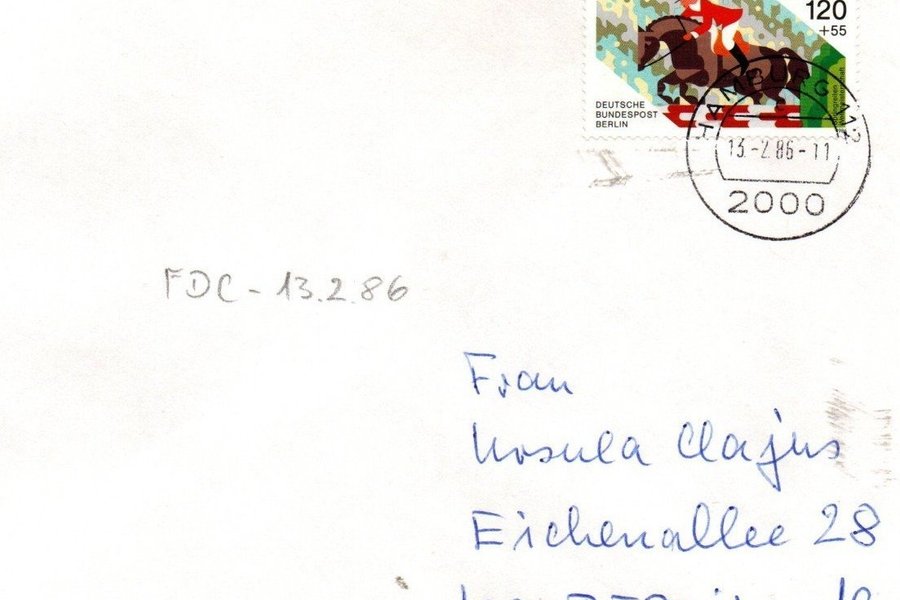 120
+55
DEUTSCHE
BUNDESPOST
BERLIN
HAMBURG 112
13.-2.86-11
2000
FDC - 13.2.86
Frau
Ursula Clajus
Eichenallee 28